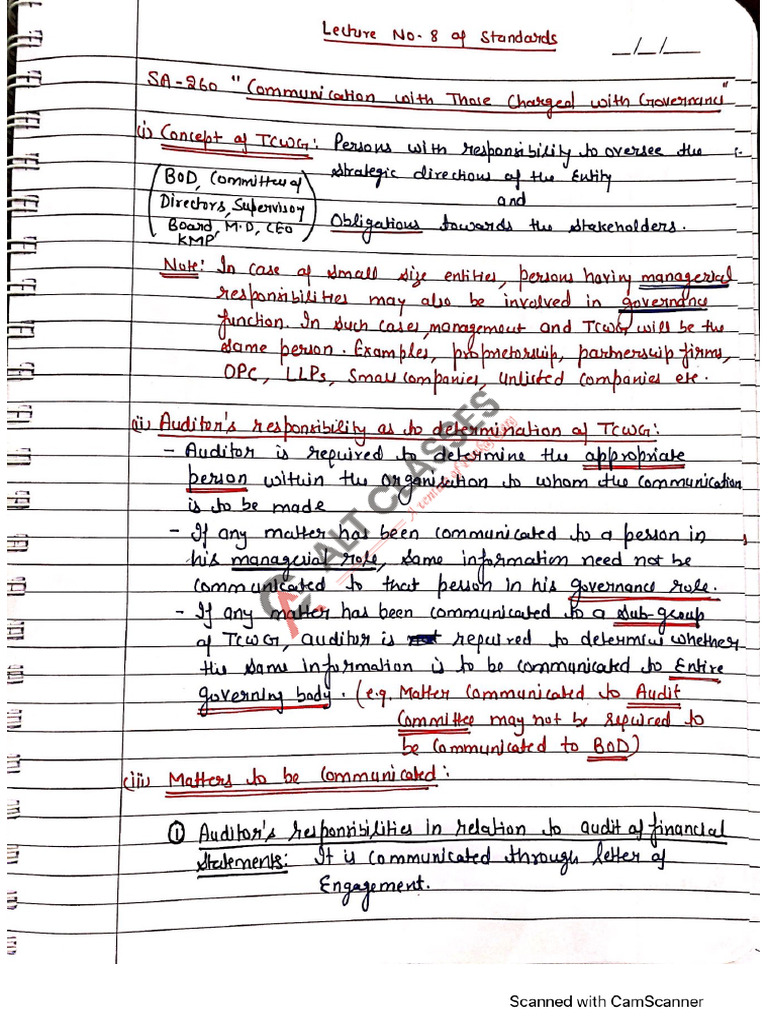 Lecture No. 8 of Standards
_/_/_
SA-260 "Communication with Those Charged with Governance"
(i) Concept of TCWG: Persons with responsibility to oversee the
(BOD, Committee of strategic directions of the Entity
Directors, Supervisory and
Board, M.D, CEO Obligations towards the stakeholders.
KMP)
Note: In case of small size entities, persons having managerial
responsibilities may also be involved in governance
function. In such cases, management and TCWG will be the
same person. Examples, proprietorship, partnership firms,
OPC, LLPs, Small companies, unlisted companies etc.
(ii) Auditor's responsibility as to determination of TCWG:
- Auditor is required to determine the appropriate
person within the organisation to whom the communication
is to be made
- If any matter has been communicated to a person in
his managerial role, same information need not be
communicated to that person in his governance role.
- If any matter has been communicated to a sub-group
of TCWG, auditor is required to determine whether
the same information is to be communicated to Entire
governing body. (e.g. Matter communicated to Audit
Committee may not be required to
be communicated to BOD)
(iii) Matters to be communicated:
① Auditor's responsibilities in relation to audit of financial
statements: It is communicated through letter of
Engagement.
ALT CLASSES
Scanned with CamScanner